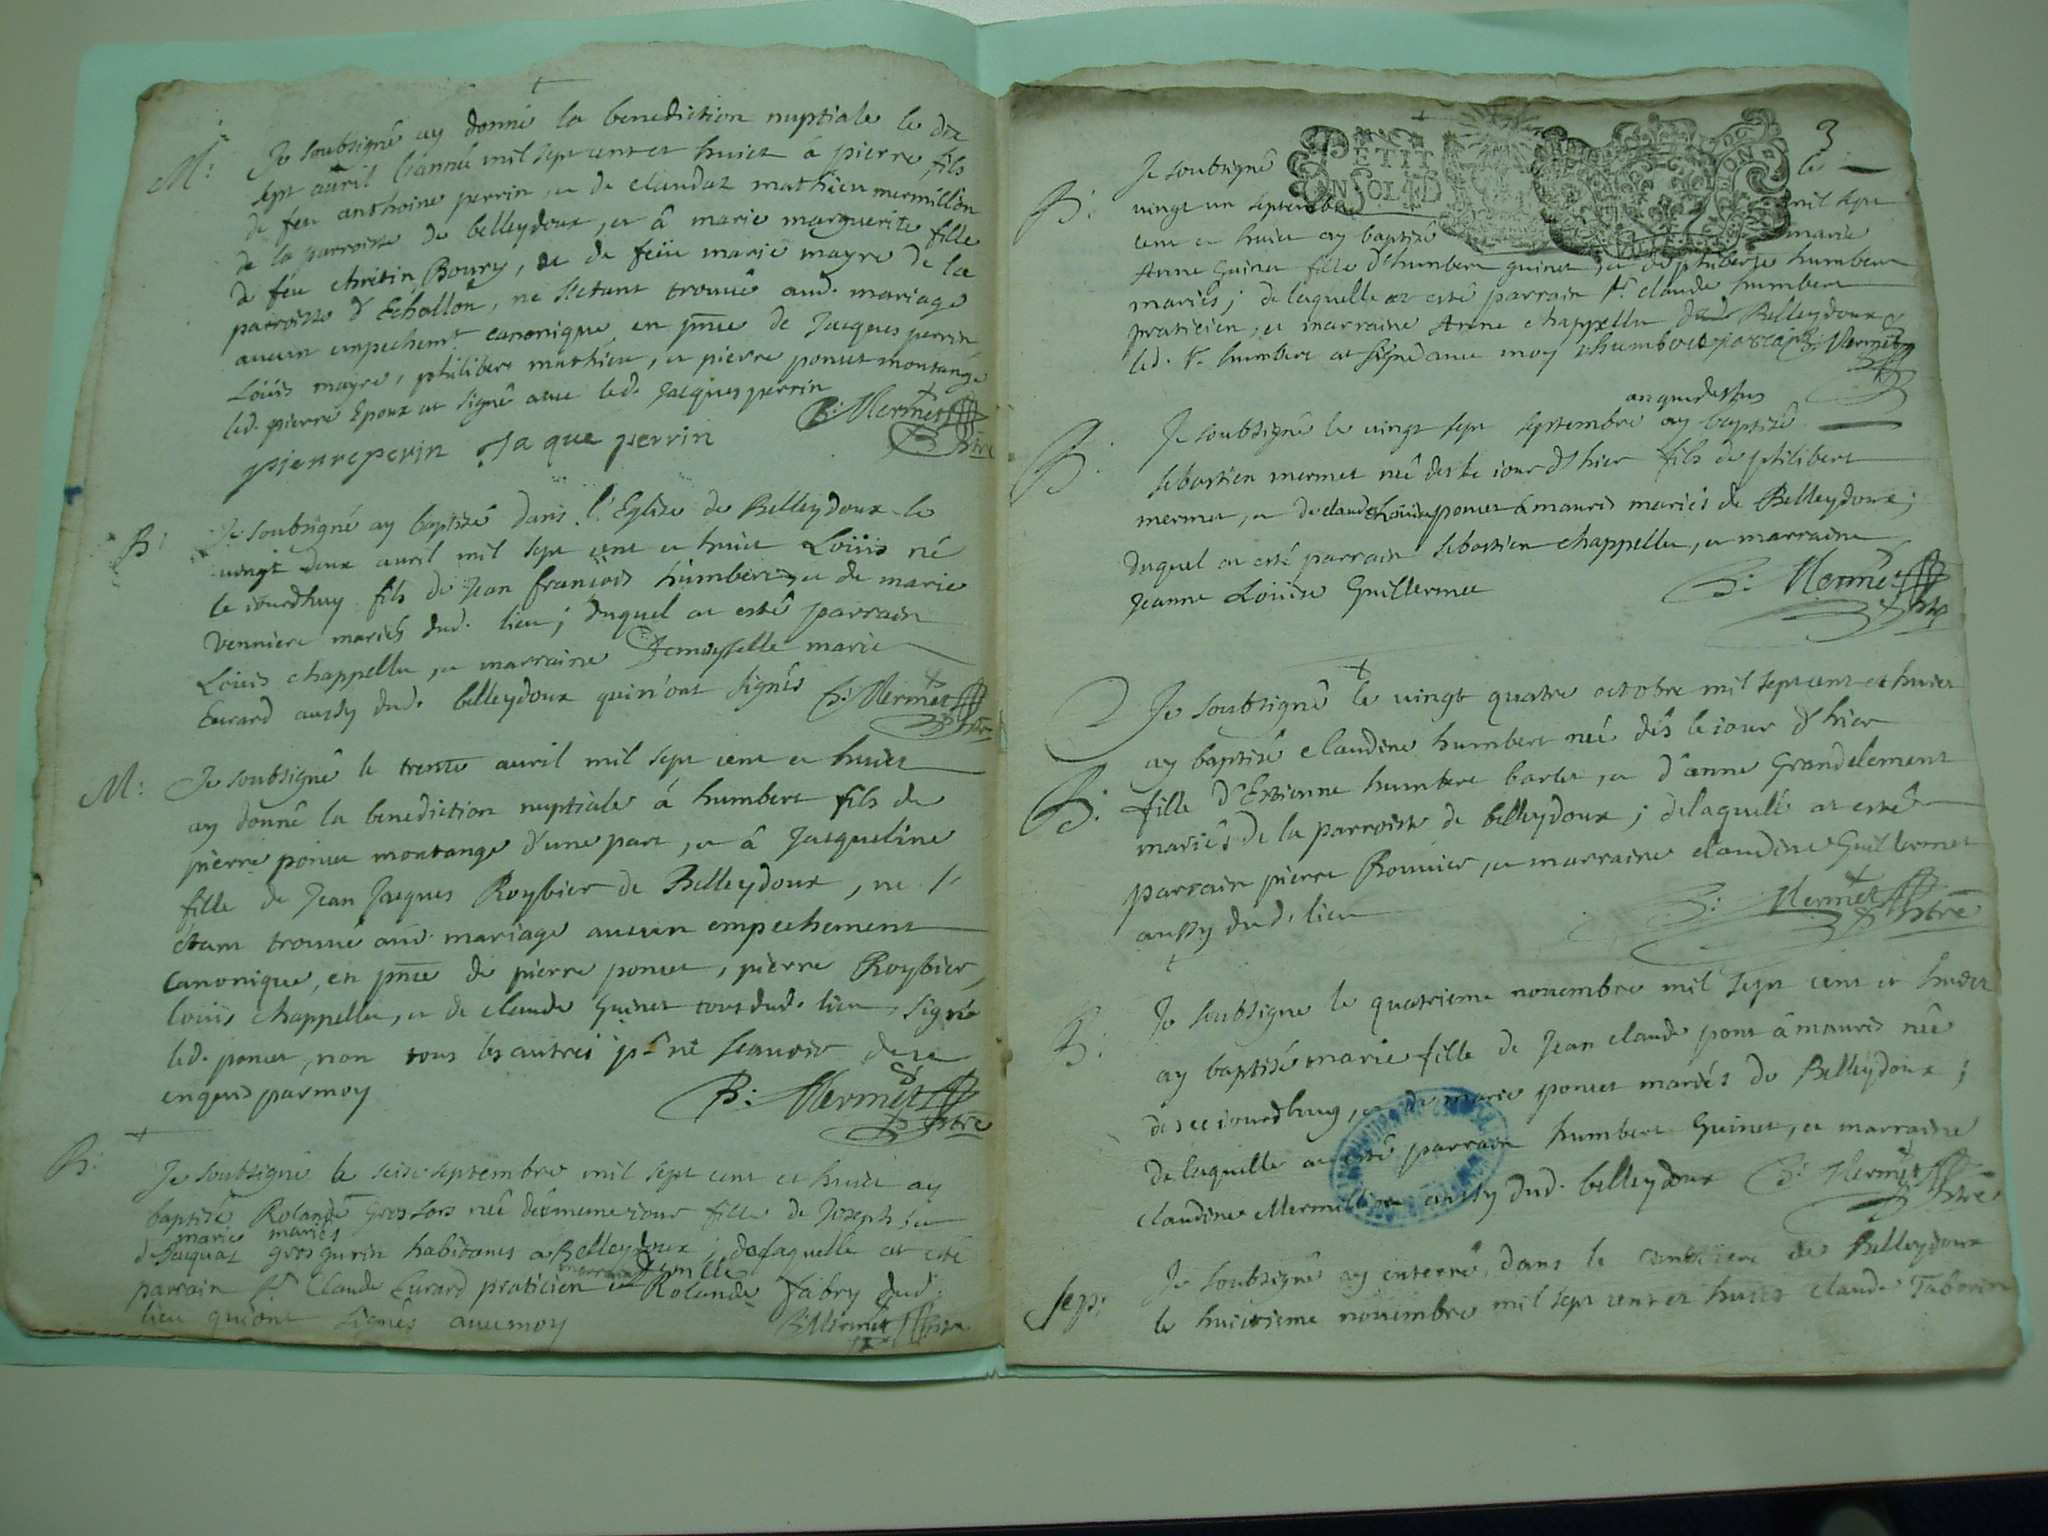 M:
Je soubsigné ay donné la benediction nuptiale le dix
sept auril l'année mil sept cent et huict à pierre fils
de feu anthoine perrin, et de claudaz mathieu mermillion
de la parroisse de belleydoux, et à marie marguerite fille
de feu chretin Boury, et de feüe marie mayre de la
parroisse d'Echallon, ne s'etant trouué aud. mariage
aucun empechemt canonique en pnce de Jacques perrin
Loüis mayre, philibert mathieu, et pierre poncet montange
led. pierre Epoux at signé auec led. Jacques perrin
pierre perin Ja que perrin B: Mermet ptre
B:
Je soubsigné ay baptisé dans l'Eglize de Belleydoux le
vingt deux auril mil sept cent et huict Loüis né
le iourdhuy fils de Jean françois humbert, et de marie
Venniere mariés dud. lieu; duquel at esté parrain
Loüis chappellu, et marraine Demoyselle marie
Eurard aussy dud. belleydoux qui n'ont signés B: Mermet ptre
M:
Je soubsigné le trente auril mil sept cent et huict
ay donné la benediction nuptiale à humbert fils de
pierre poncet montange d'une part, et à Jacqueline
fille de Jean Jacques Roybier de Belleydoux, ne s'
étant trouué aud. mariage aucun empechement
canonique, en pnce de pierre poncet, pierre Roybier,
loüis chappellu, et de claude Guinet tous dud. lieu, signé
led. poncet, non tous les autres pr ne scauoir de ce
enquis par moy
B: Mermet ptre
B:
Je soubsigné le seise septembre mil sept cent et huict ay
baptisé Rolande Grosfort née de même iour fille de Joseph, et
marie mariés
d Jacquaz gros gurin habitants à Belleydoux; de laquelle at esté
marraine
parrain Sr Claude Eurard praticien et Dlle Rolande fabry dud.
lieu qui ont signés auec moy B: Mermet ptre
3
PETIT
EN SOL 4 D
B:
Je soubsigné le
vingt un septembre mil sept
cent et huict ay baptisé marie
Anne Guinet fille d'humbert guinet, et de philiberte humbert
mariés; de laquelle at esté parrain Sr claude humbert
praticien, et marraine Anne chappellu dud. Belleydoux
led. Sr humbert at signé auec moy C humbert parain B: Mermet ptre
B.
an que dessus
Je soubsigné le vingt sept septembre ay baptisé
sebastien mermet né des le iour d'hier fils de philibert
mermet, et de claude Loüise poncet à mauris mariés de Belleydoux;
duquel at esté parrain sebastien chappellu, et marraine
Jeanne Loüise Guillermet B: Mermet ptre
Je soubsigné le vingt quatre octobre mil sept cent et huict
ay baptisé claudine humbert née dés le iour d'hier
B.
fille d'Estienne humbert barlet, et d'anne Grandclement
mariés de la parroisse de belleydoux; de laquelle at esté
parrain pierre Rouuier, et marraine claudine Guillermet
aussy dud. lieu B: Mermet ptre
B:
Je soubsigné le quatrieme nouembre mil sept cent et huict
ay baptisé marie fille de Jean claude pont à mauris née
des ce iourdhuy, et de marie poncet mariés de Belleydoux;
de laquelle at esté parrain humbert Guinet, et marraine
claudine Mermillion aussy dud. belleydoux B: Mermet ptre
sep:
Je soubsigné ay enterré dans le cimetiere de Belleydoux
le huictieme nouembre mil sept cent et huict claude Taborin